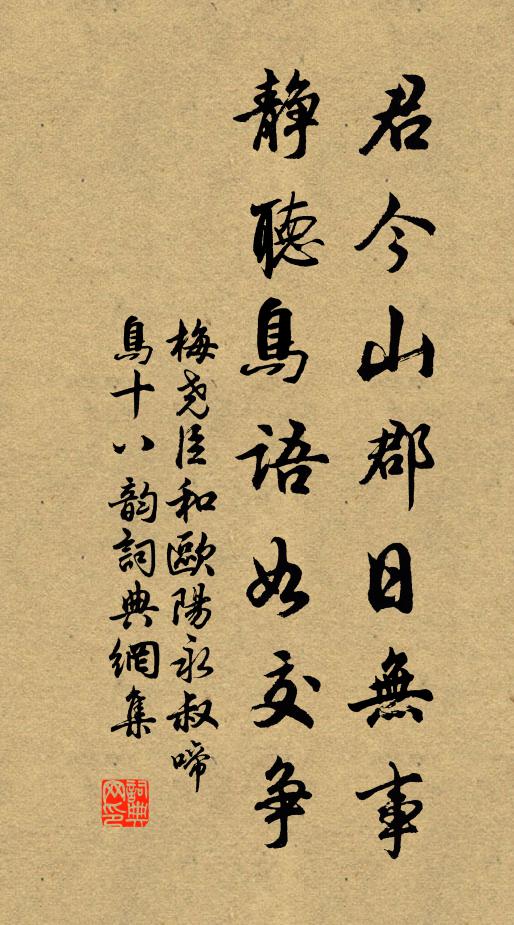 君今山郡日無事
静聽鳥語如交争
梅尧臣和歐陽永叔啼
鳥十八韵詞典網集
詞典网印